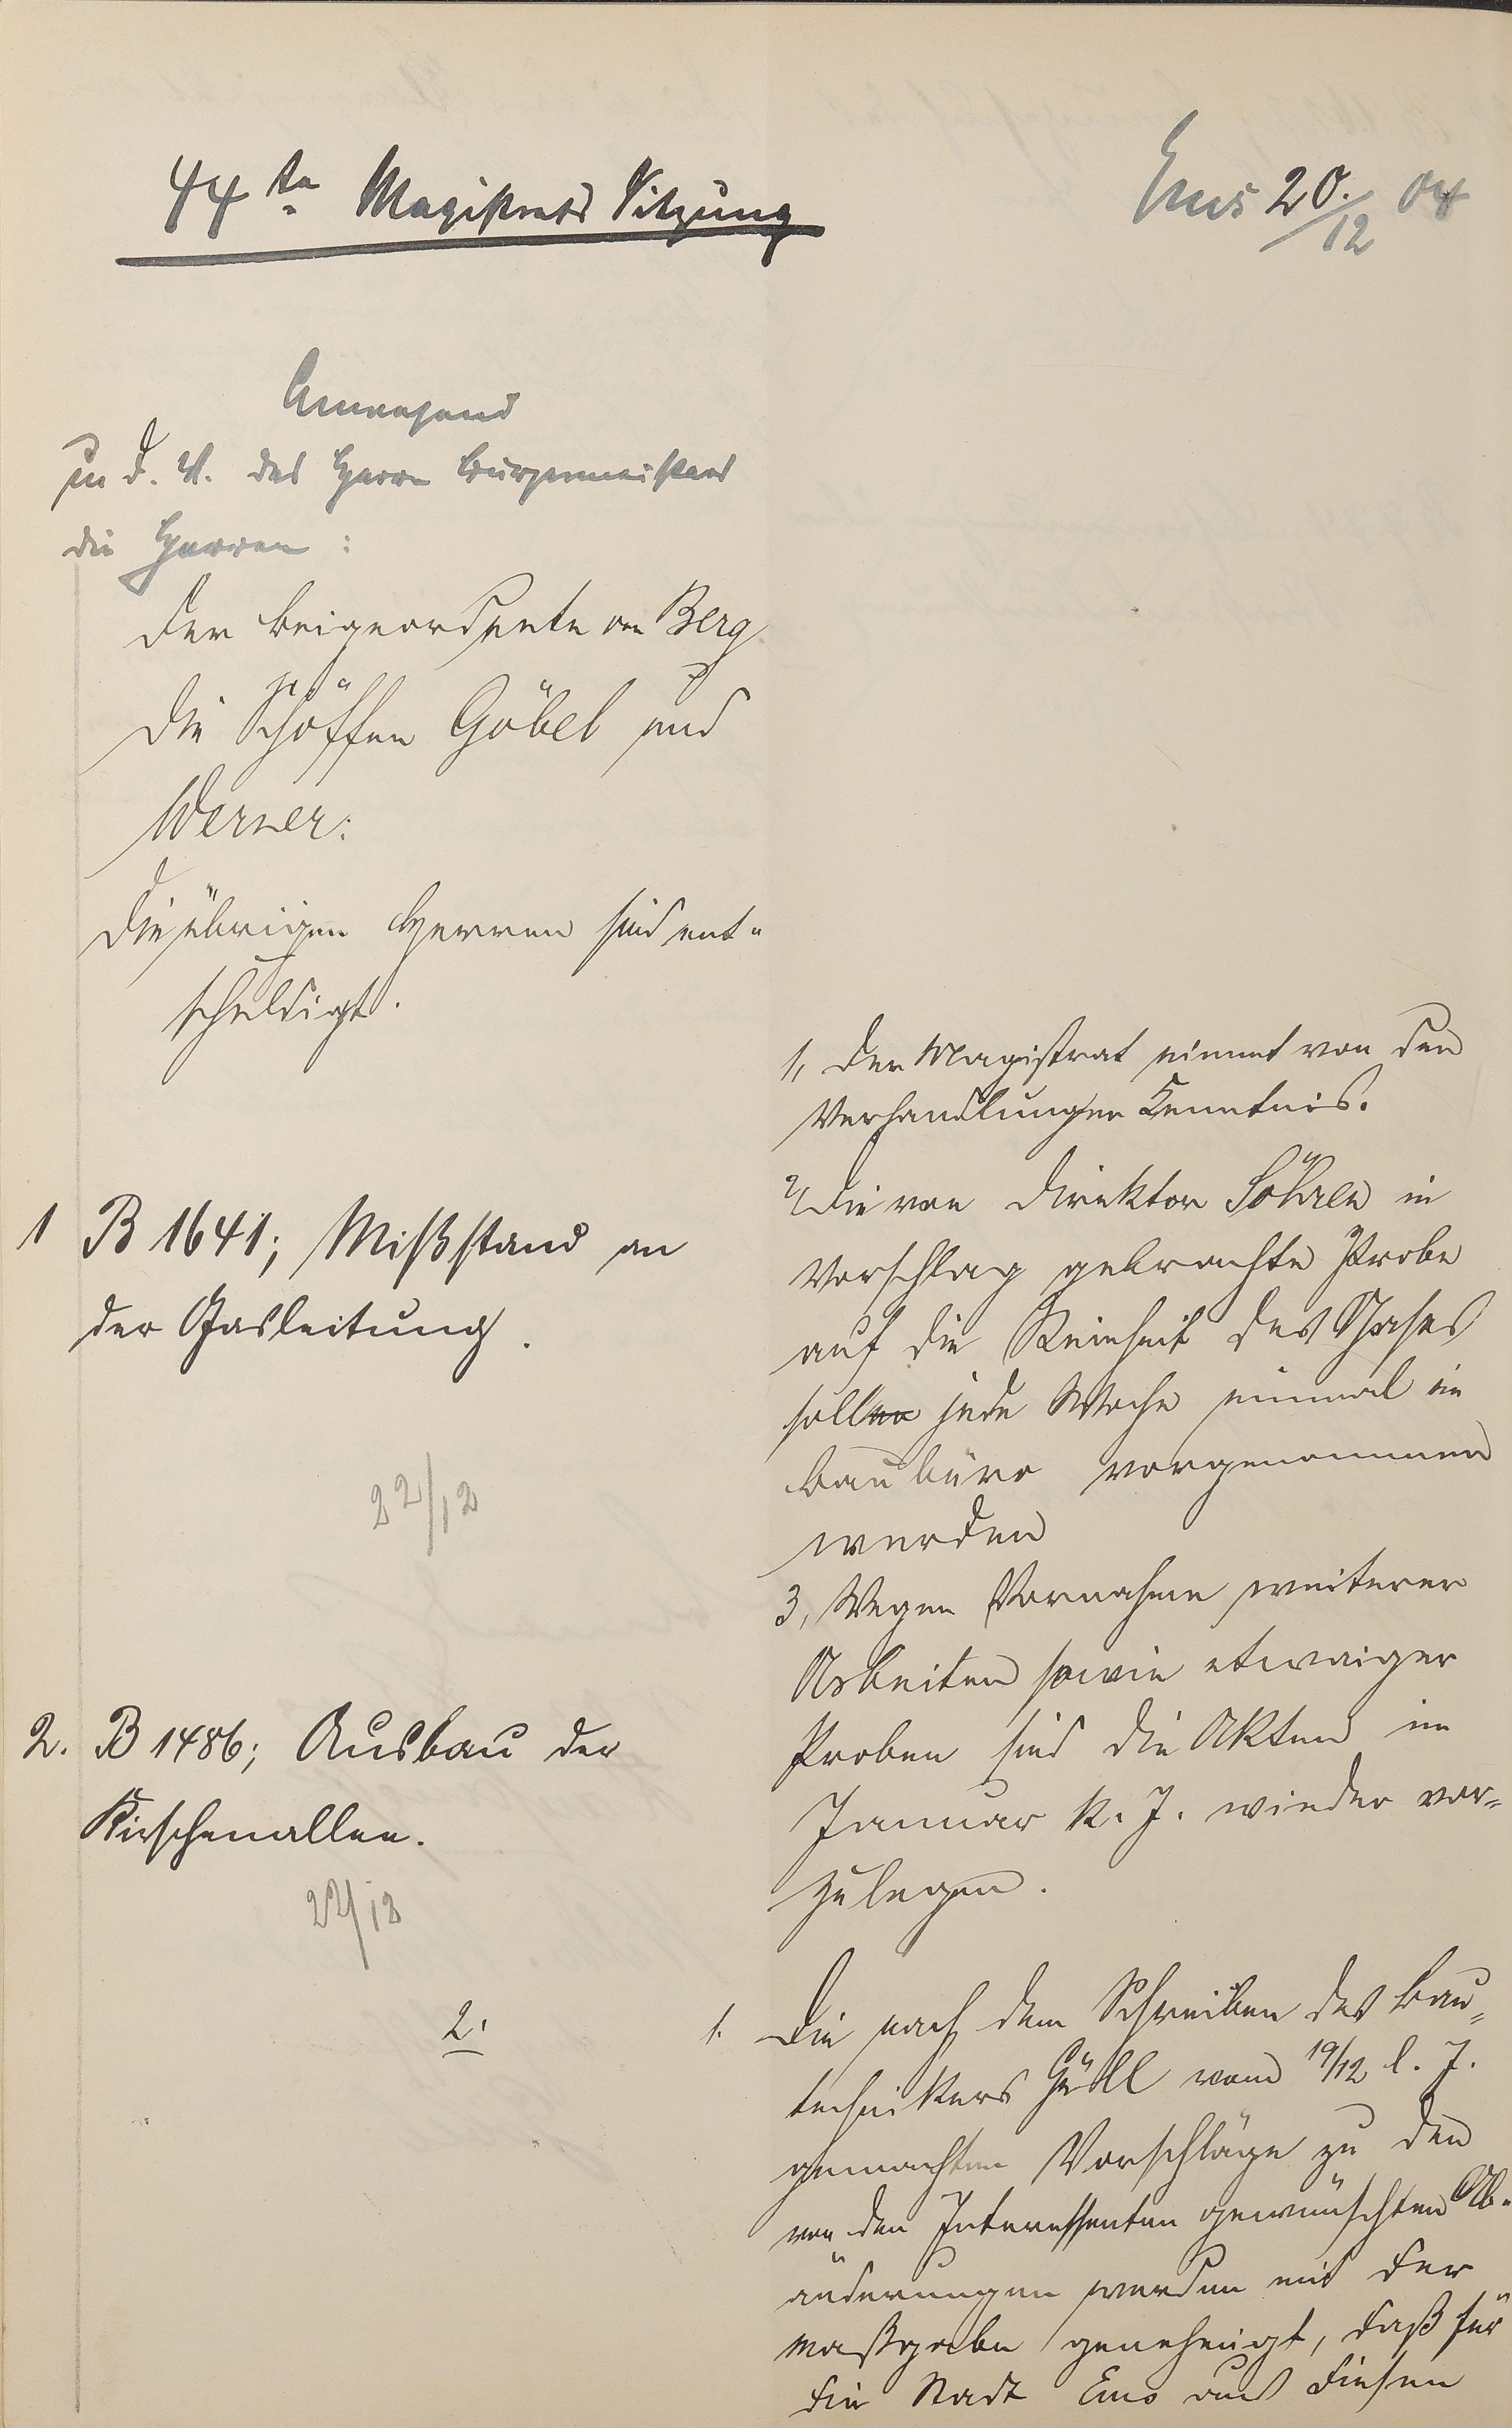 44te Magistrats Sitzung
Ems 20./12 04
Anwesend
u. d. V. des Herrn Bürgermeisters
die Herren:
Der Beigeordnete von Berg
Die Schöffen Göbel und
Werner.
Die übrigen Herren sind ent-
schuldigt.
1 B 1641; Mißstand an
der Gasleitung.
22/12
2. B 1486; Ausbau der
Kirschenallee.
22/12
2.
1, Der Magistrat nimmt von den
Verhandlungen Kenntnis.
2, Die von Direktor Söhren in
Vorschlag gebrachte Probe
auf die Reinheit des Gases
soll jede Woche einmal im
Baubüro vorgenommen
werden
3, Wegen Vornahme weiterer
Arbeiten sowie etwaiger
Proben sind die Akten im
Januar k. J. wieder vor-
zulegen.
1. Die nach dem Schreiben des Bau-
technikers Güll vom 19/12 l. J.
gemachten Vorschläge zu den
von den Interessenten gewünschten Ab-
änderungen werden mit der
Maßgabe genehmigt, daß für
die Stadt Ems aus diesen